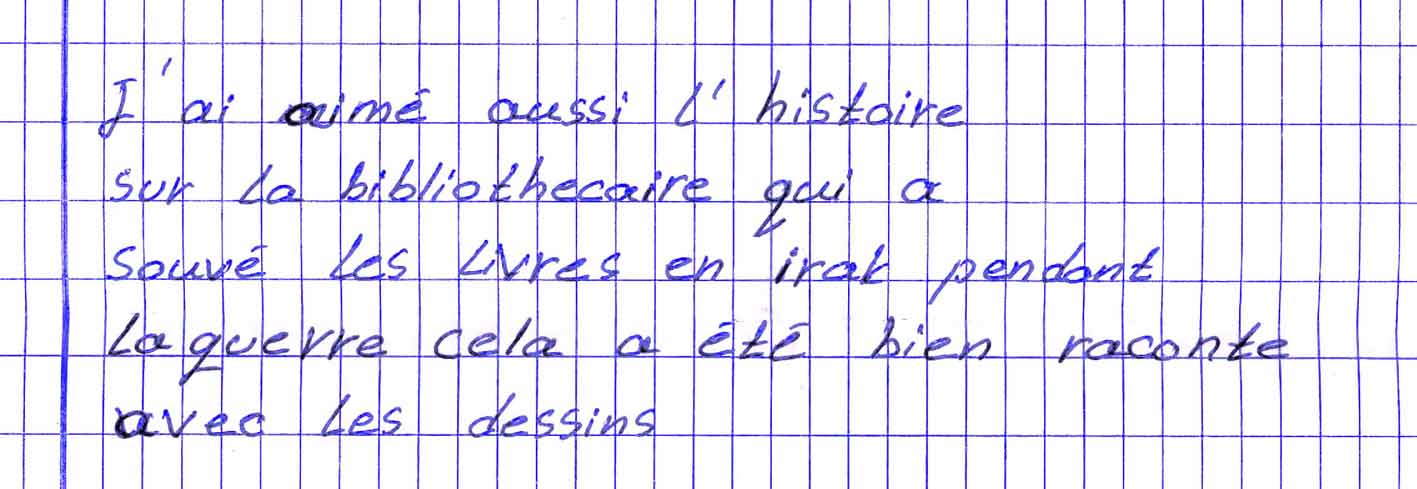 J'ai aimé aussi l'histoire
sur la bibliothecaire qui a
souvé les livres en irak pendant
la guerre cela a été bien raconte
avec les dessins